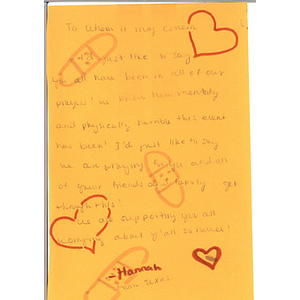 To whom it may concern
I'd just like to say
you all have been in all of our
prayers! we know how mentally
and physically horrible this event
has been! I'd just like to say
we are praying for you and all
of your friends and family get
through this!
we are supporting you all
worrying about y'all
-Hannah
from Texas